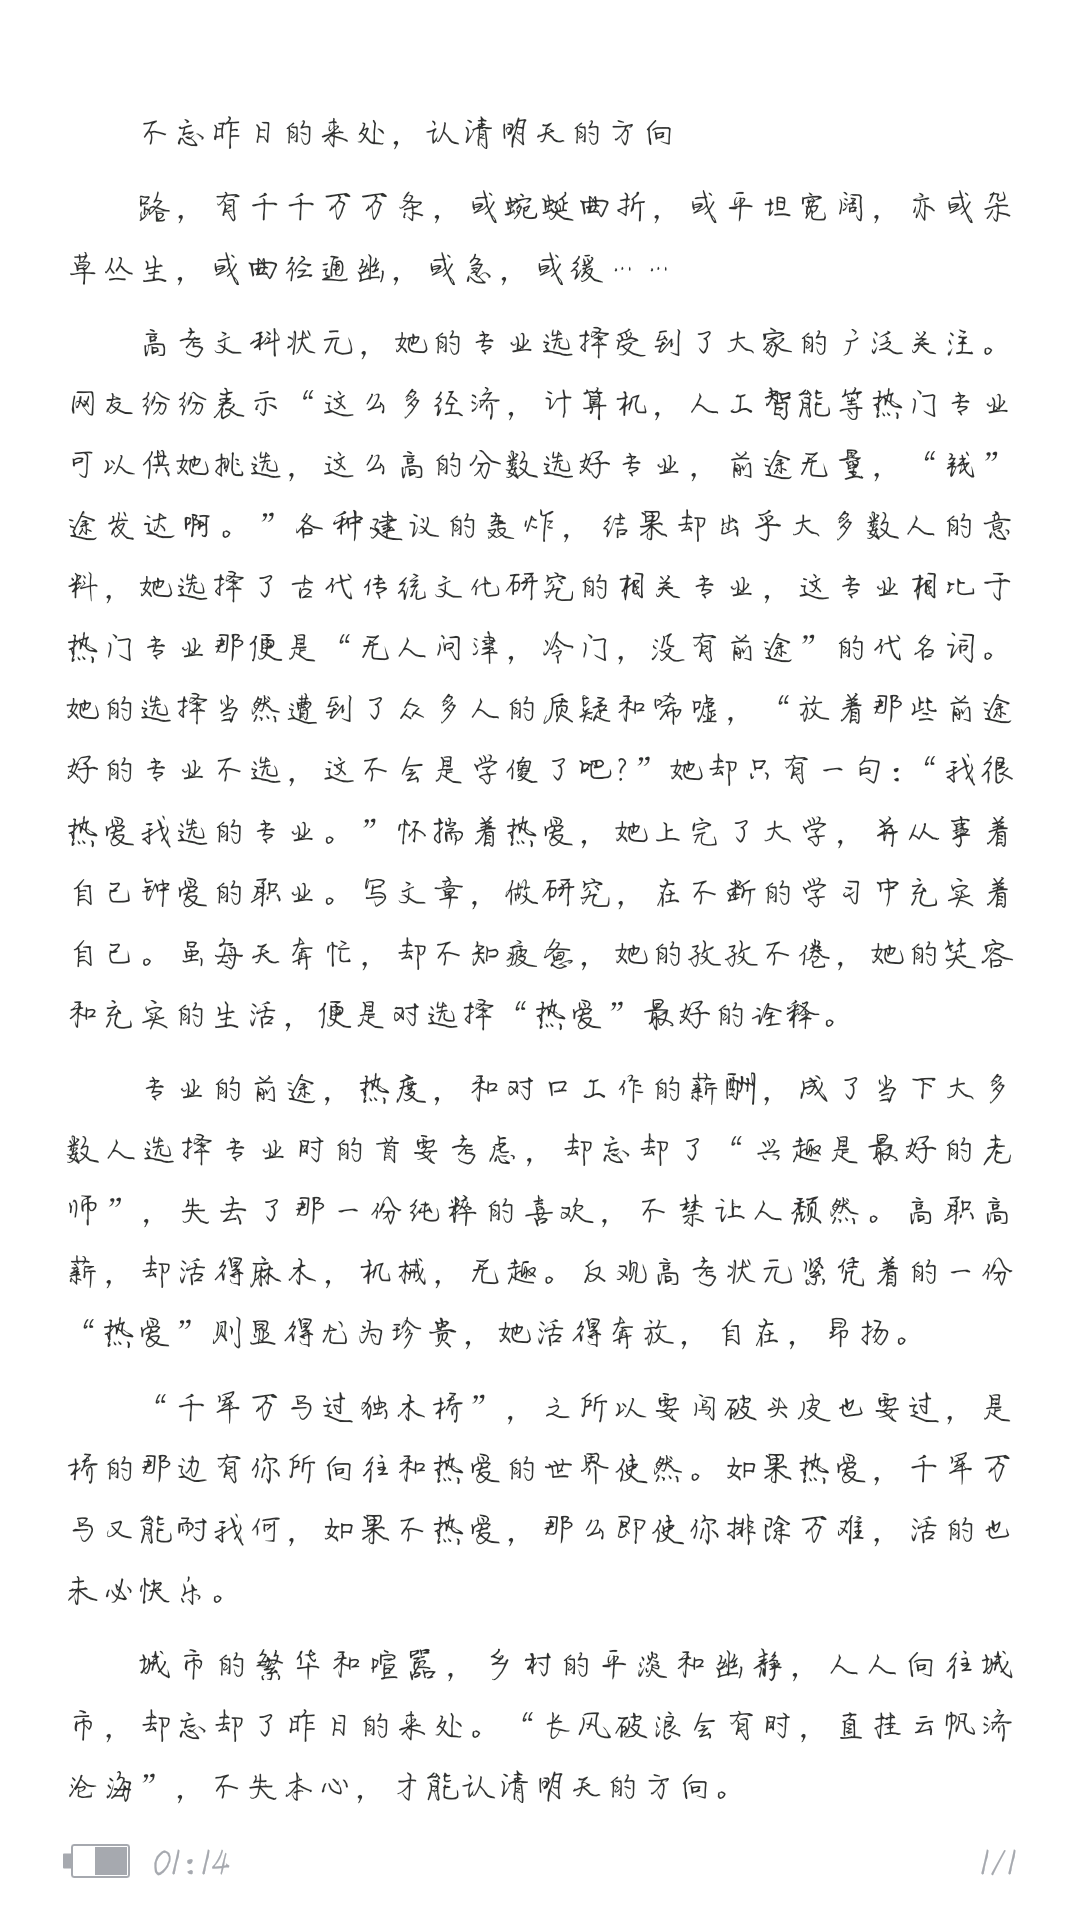 不忘昨日的来处，认清明天的方向
路，有千千万万条，或蜿蜒曲折，或平坦宽阔，亦或杂
草丛生，或曲径通幽，或急，或缓……
高考文科状元，她的专业选择受到了大家的广泛关注。
网友纷纷表示“这么多经济，计算机，人工智能等热门专业
可以供她挑选，这么高的分数选好专业，前途无量，“钱”
途发达啊。”各种建议的轰炸，结果却出乎大多数人的意
料，她选择了古代传统文化研究的相关专业，这专业相比于
热门专业那便是“无人问津，冷门，没有前途”的代名词。
她的选择当然遭到了众多人的质疑和唏嘘，“放着那些前途
好的专业不选，这不会是学傻了吧?”她却只有一句:“我很
热爱我选的专业。”怀揣着热爱，她上完了大学，并从事着
自己钟爱的职业。写文章，做研究，在不断的学习中充实着
自己。虽每天奔忙，却不知疲惫，她的孜孜不倦，她的笑容
和充实的生活，便是对选择“热爱”最好的诠释。
专业的前途，热度，和对口工作的薪酬，成了当下大多
数人选择专业时的首要考虑，却忘却了“兴趣是最好的老
师”，失去了那一份纯粹的喜欢，不禁让人颓然。高职高
薪，却活得麻木，机械，无趣。反观高考状元紧凭着的一份
“热爱”则显得尤为珍贵，她活得奔放，自在，昂扬。
“千军万马过独木桥”，之所以要闯破头皮也要过，是
桥的那边有你所向往和热爱的世界使然。如果热爱，千军万
马又能耐我何，如果不热爱，那么即使你排除万难，活的也
未必快乐。
城市的繁华和喧嚣，乡村的平淡和幽静，人人向往城
市，却忘却了昨日的来处。“长风破浪会有时，直挂云帆济
沧海”，不失本心，才能认清明天的方向。
01:14
1/1